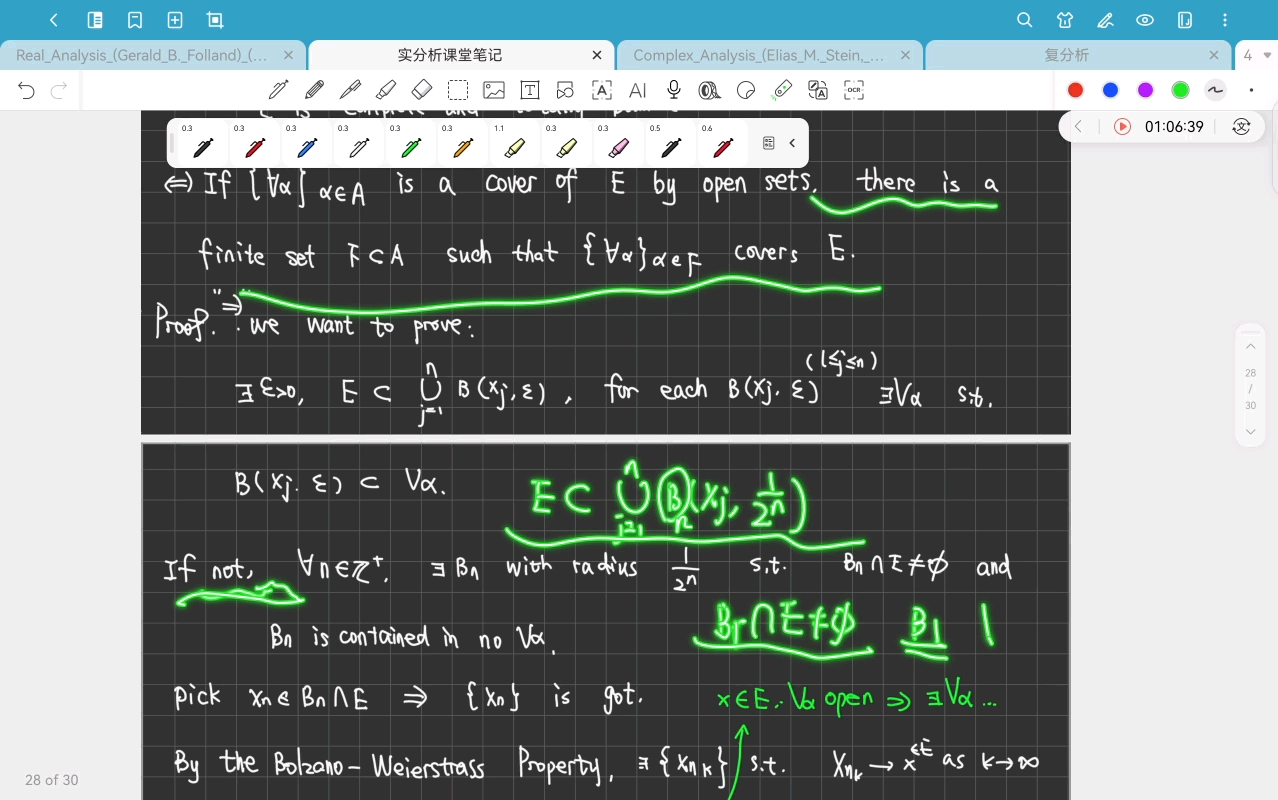 Real_Analysis_(Gerald_B._Folland)_(...
实分析课堂笔记
Complex_Analysis_(Elias_M._Stein,_...
复分析
4
AI
OCR
0.3 0.3 0.3 0.3 0.3 0.3 1.1 0.3 0.3 0.5 0.6
01:06:39
is complete and
⇔) If {Vα}α∈A is a cover of E by open sets, there is a
finite set F⊂A such that {Vα}α∈F covers E.
Proof. "⇒" we want to prove:
∃ε>0, E ⊂ ⋃_{j=1}^{n} B(xj,ε), for each B(xj,ε) (1≤j≤n) ∃Vα s.t.
28
/
30
B(xj,ε) ⊂ Vα. E ⊂ ⋃_{j=1}^{n} B_n(xj, 1/2^n)
If not, ∀n∈ℤ⁺, ∃Bn with radius 1/2^n s.t. Bn∩E≠∅ and
Bn is contained in no Vα. B1∩E≠∅ B1 1
pick xn∈Bn∩E ⇒ {xn} is got. x∈E. Vα open ⇒ ∃Vα ...
By the Bolzano-Weierstrass Property, ∃{xnk} s.t. xnk→x∈E as k→∞
28 of 30